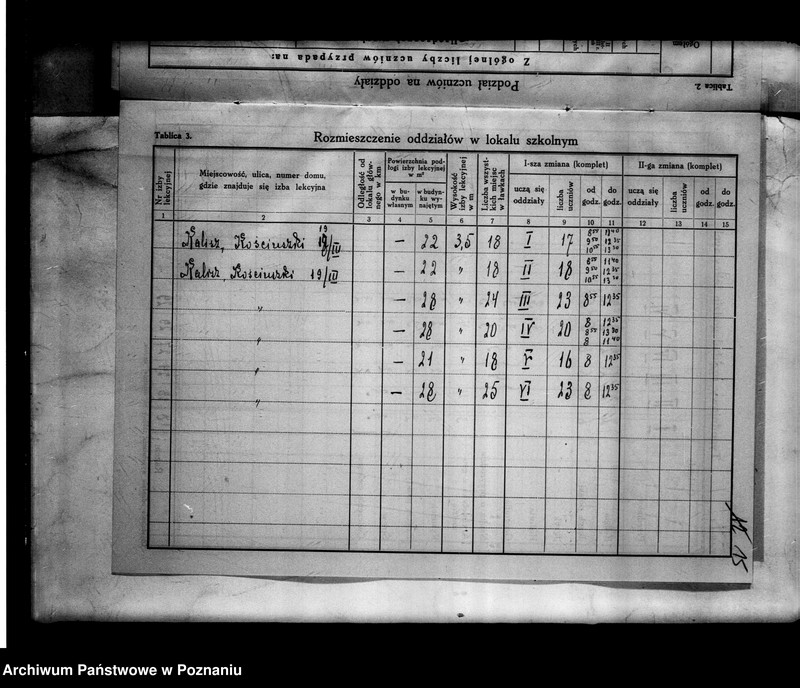 Z ogólnej liczby uczniów przypada na:
Tablica 2. Podział uczniów na oddziały
Tablica 3. Rozmieszczenie oddziałów w lokalu szkolnym
Nr izby lekcyjnej
Miejscowość, ulica, numer domu,
gdzie znajduje się izba lekcyjna
Odległość od
lokalu głów-
nego w km
Powierzchnia pod-
łogi izby lekcyjnej
w m²
w bu-
dynku
własnym
w budyn-
ku wy-
najętym
Wysokość
izby lekcyjnej
w m
Liczba wszyst-
kich miejsc
w ławkach
I-sza zmiana (komplet)
uczą się
oddziały
liczba
uczniów
od
godz.
do
godz.
II-ga zmiana (komplet)
uczą się
oddziały
liczba
uczniów
od
godz.
do
godz.
1 2 3 4 5 6 7 8 9 10 11 12 13 14 15
Kalisz, Kościuszki /III — 22 3,5 18 I 17 8⁵⁵ 11⁴⁰
9⁵⁰ 12³⁵
10⁵⁵ 13³⁰
Kalisz, Kościuszki 19/III — 22 " 18 II 18 8⁵⁵ 11⁴⁰
9⁵⁰ 12³⁵
10⁵⁵ 13³⁰
" — 28 " 24 III 23 8⁵⁵ 12³⁵
" — 28 " 20 IV 20 8 12³⁵
8⁵⁵ 13³⁰
8 11⁴⁰
" — 21 " 18 V 16 8 12³⁵
" — 28 " 25 VI 23 8 12³⁵
Archiwum Państwowe w Poznaniu